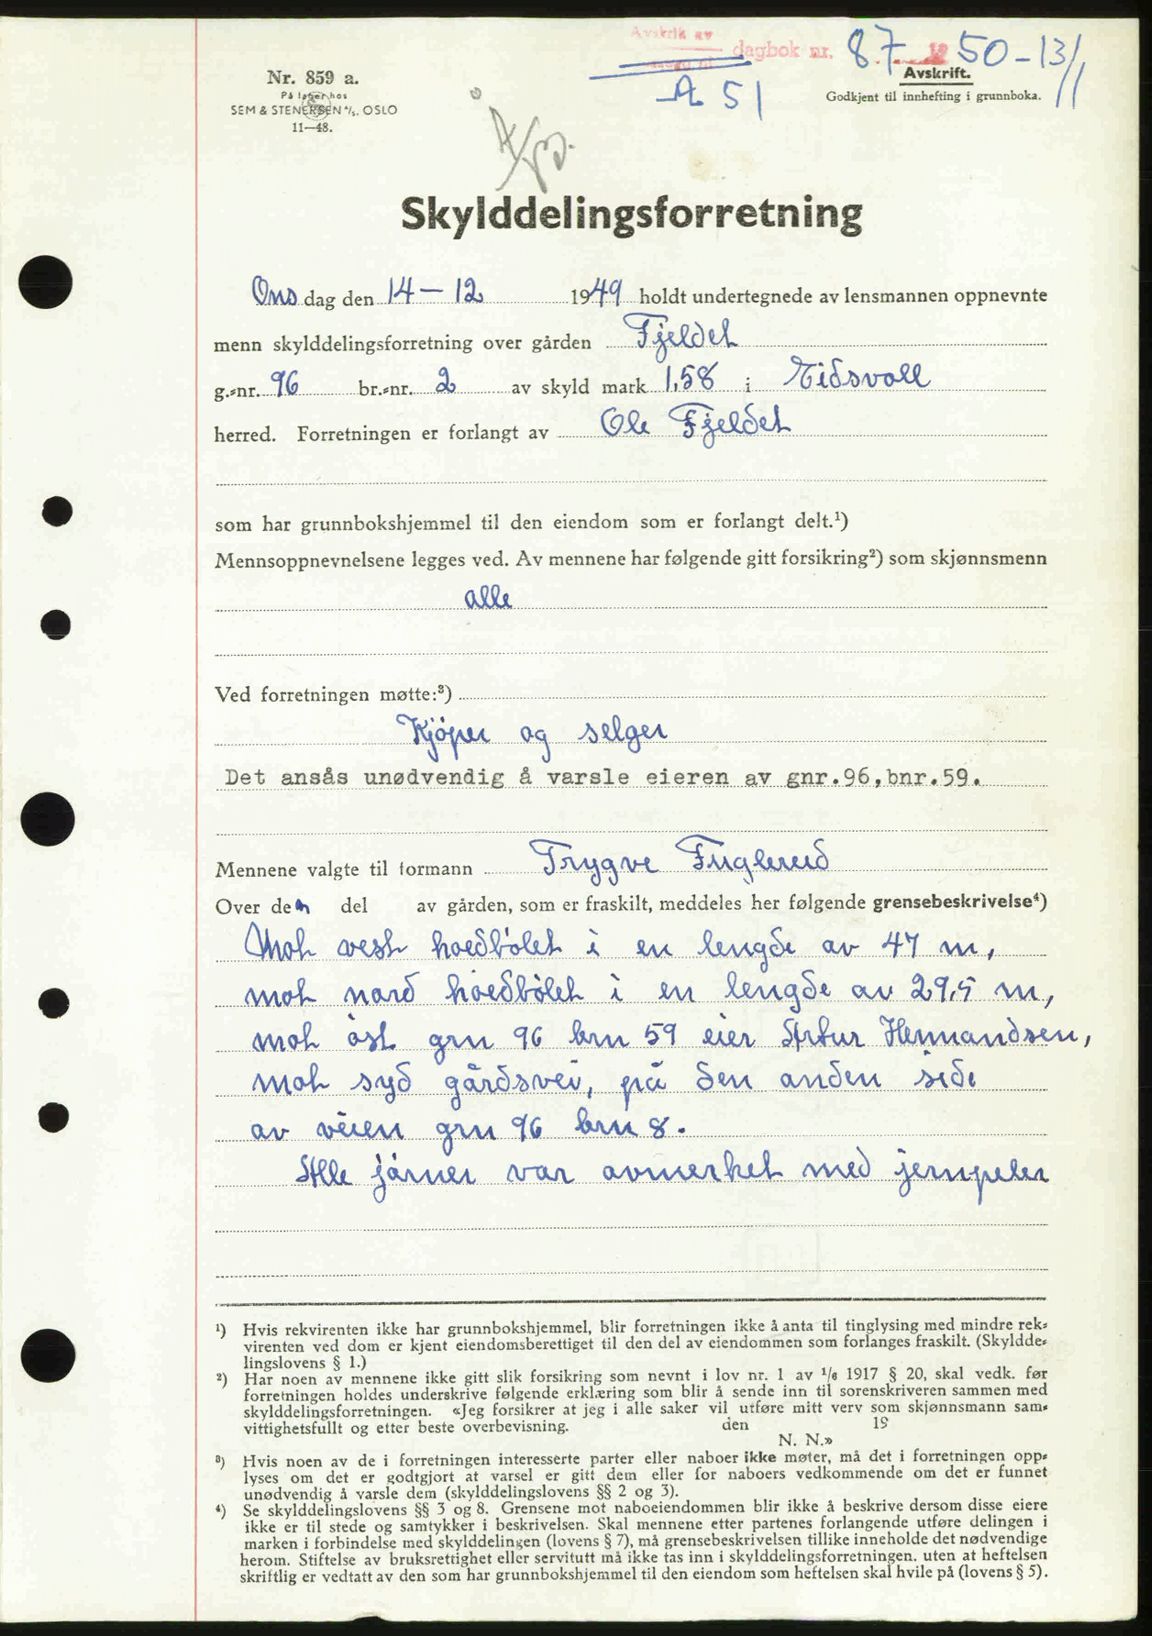 Avskrik av
dagbok nr. 87 1950-13/1
A 51
Avskrift.
Godkjent til innhefting i grunnboka.
Nr. 859 a.
På lager hos
SEM & STENERSEN A/S. OSLO
11—48.
Skylddelingsforretning
Onsdag den 14-12 1949 holdt undertegnede av lensmannen oppnevnte
menn skylddelingsforretning over gården Fjeldet
g.-nr. 96 br.-nr. 2 av skyld mark 1,58 i Eidsvoll
herred. Forretningen er forlangt av Ole Fjeldet
som har grunnbokshjemmel til den eiendom som er forlangt delt.¹)
Mennsoppnevnelsene legges ved. Av mennene har følgende gitt forsikring²) som skjønnsmenn
alle
Ved forretningen møtte:³)
Kjøper og selger
Det ansås unødvendig å varsle eieren av gnr.96,bnr.59.
Mennene valgte til formann Trygve Fuglerud
Over den del av gården, som er fraskilt, meddeles her følgende grensebeskrivelse⁴)
Mot vest hoedbølet i en lengde av 47 m,
mot nord hoedbølet i en lengde av 29,5 m,
mot øst grn 96 brn 59 eier Artur Hermandsen,
mot syd gårdsvei, på den anden side
av veien grn 96 brn 8.
Alle järner var avmerket med jernpeler
¹) Hvis rekvirenten ikke har grunnbokshjemmel, blir forretningen ikke å anta til tinglysing med mindre rek-
virenten ved dom er kjent eiendomsberettiget til den del av eiendommen som forlanges fraskilt. (Skyldde-
lingslovens § 1.)
²) Har noen av mennene ikke gitt slik forsikring som nevnt i lov nr. 1 av 1/6 1917 § 20, skal vedk. før
forretningen holdes underskrive følgende erklæring som blir å sende inn til sorenskriveren sammen med
skylddelingsforretningen. «Jeg forsikrer at jeg i alle saker vil utføre mitt verv som skjønnsmann sam-
vittighetsfullt og etter beste overbevisning. den 19
N. N.»
³) Hvis noen av de i forretningen interesserte parter eller naboer ikke møter, må det i forretningen opp-
lyses om det er godtgjort at varsel er gitt dem eller for naboers vedkommende om det er funnet
unødvendig å varsle dem (skylddelingslovens §§ 2 og 3).
⁴) Se skylddelingslovens §§ 3 og 8. Grensene mot naboeiendommen blir ikke å beskrive dersom disse eiere
ikke er til stede og samtykker i beskrivelsen. Skal mennene etter partenes forlangende utføre delingen i
marken i forbindelse med skylddelingen (lovens § 7), må grensebeskrivelsen tillike inneholde det nødvendige
herom. Stiftelse av bruksrettighet eller servitutt må ikke tas inn i skylddelingsforretningen. uten at heftelsen
skriftlig er vedtatt av den som har grunnbokshjemmel til den eiendom som heftelsen skal hvile på (lovens § 5).